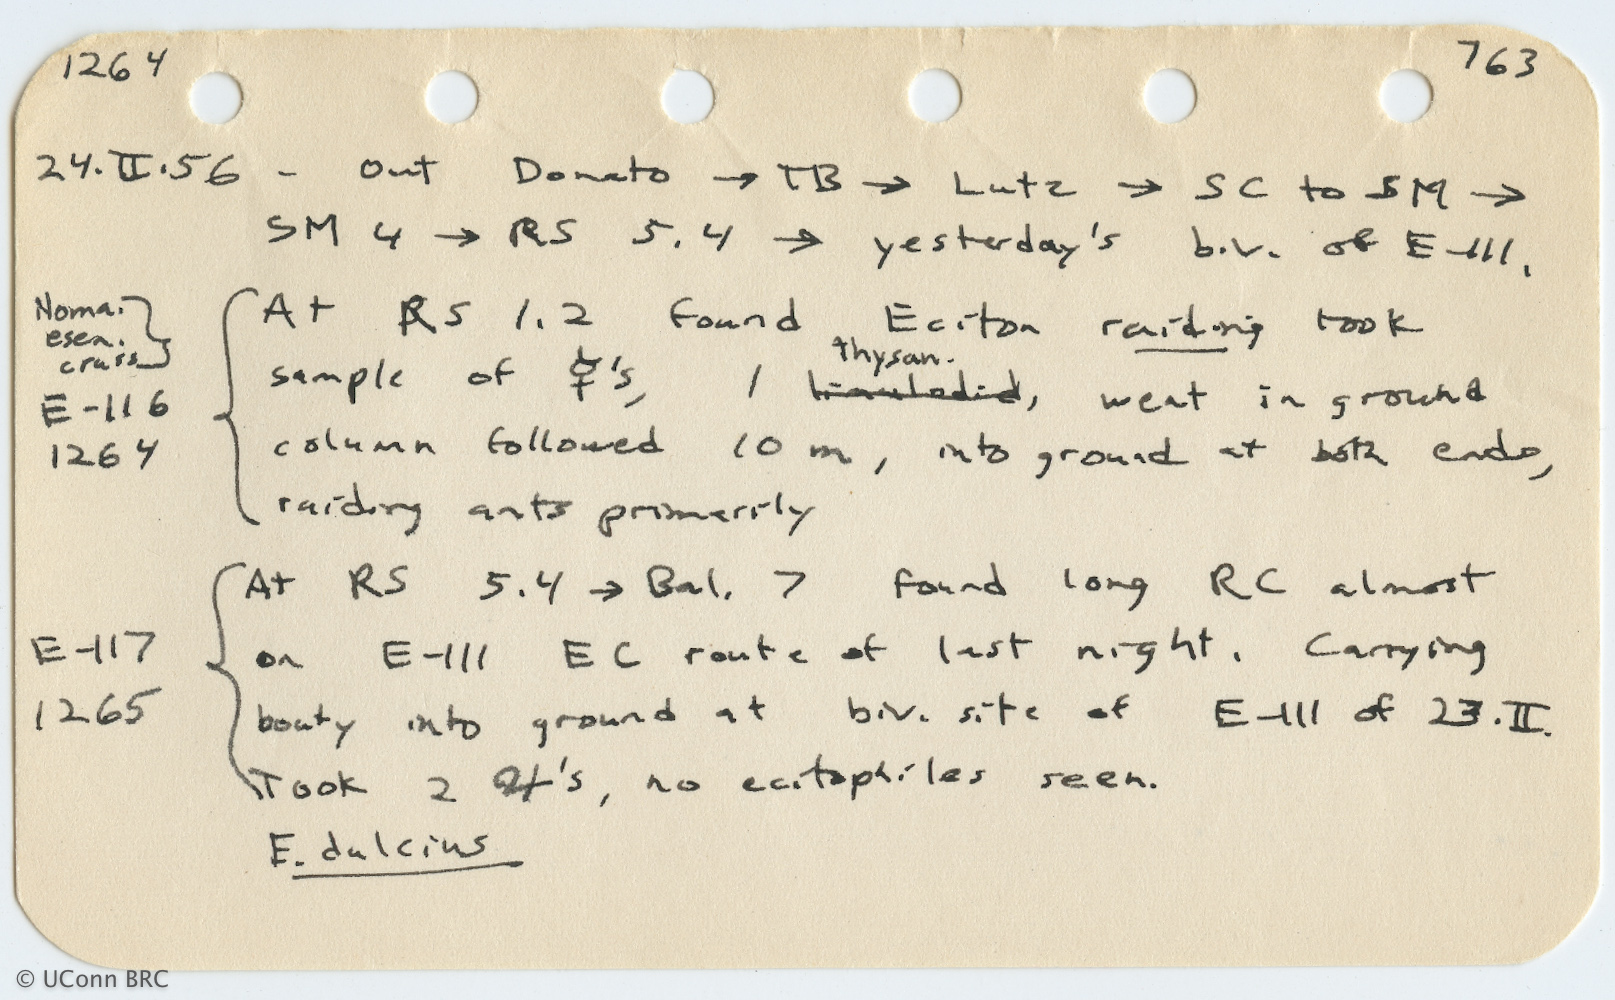 1264 763
24.II.56 - Out Donato → TB → Lutz → SC to SM →
SM 4 → RS 5.4 → yesterday's biv. of E-111.
Noma.
esen.
crass.
E-116
1264
At RS 1.2 found Eciton raiding took
sample of ☿'s, 1 thysan. limulodid, went in ground
column followed 10 m, into ground at both ends,
raiding ants primarily
E-117
1265
At RS 5.4 → Bal. 7 found long RC almost
on E-111 EC route of last night. Carrying
booty into ground at biv. site of E-111 of 23.II.
Took 2 ♃'s, no ecitophiles seen.
E. dulcius
© UConn BRC